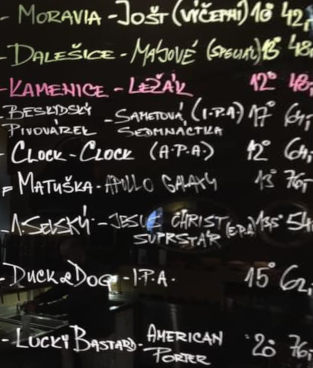 - MORAVIA - JOŠT (VÍČEPNÍ) 10° 42,
- DALEŠICE - MÁJOVÉ (SPECIÁL) 13° 48,
- KAMENICE - LEŽÁK 12° 48,
- BESKIDSKÝ PIVOVÁREK - SAMETOVÁ SEDMNÁCTKA (I.P.A) 17° 64,
- CLOCK - CLOCK (A.P.A.) 12° 64,
MATUŠKA - APOLLO GALAXY 13° 76,
- JESUS CHRIST SUPRSTAR (E.P.A) 54
- DUCK & DOG - I.P.A. 15° 62,
- LUCKY BASTARD - AMERICAN PORTER 20° 76,